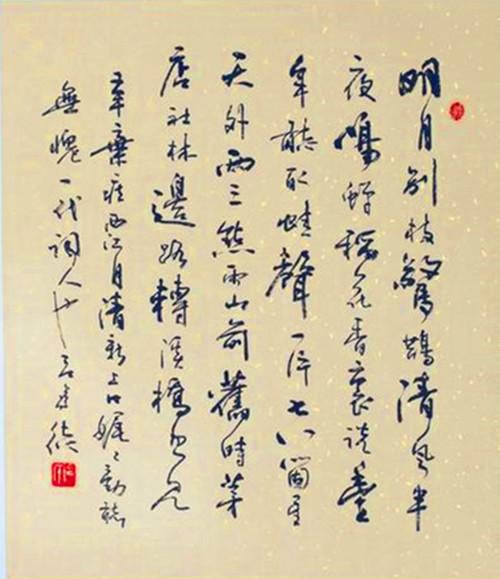 明月別枝驚鵲清風半
夜鳴蟬稻花香裏說豐
年聽取蛙聲一片七八箇星
天外兩三點雨山前舊時茅
店社林邊路轉溪橋忽見
辛棄疾西江月清新上口娓々動聽
無愧一代詞人也